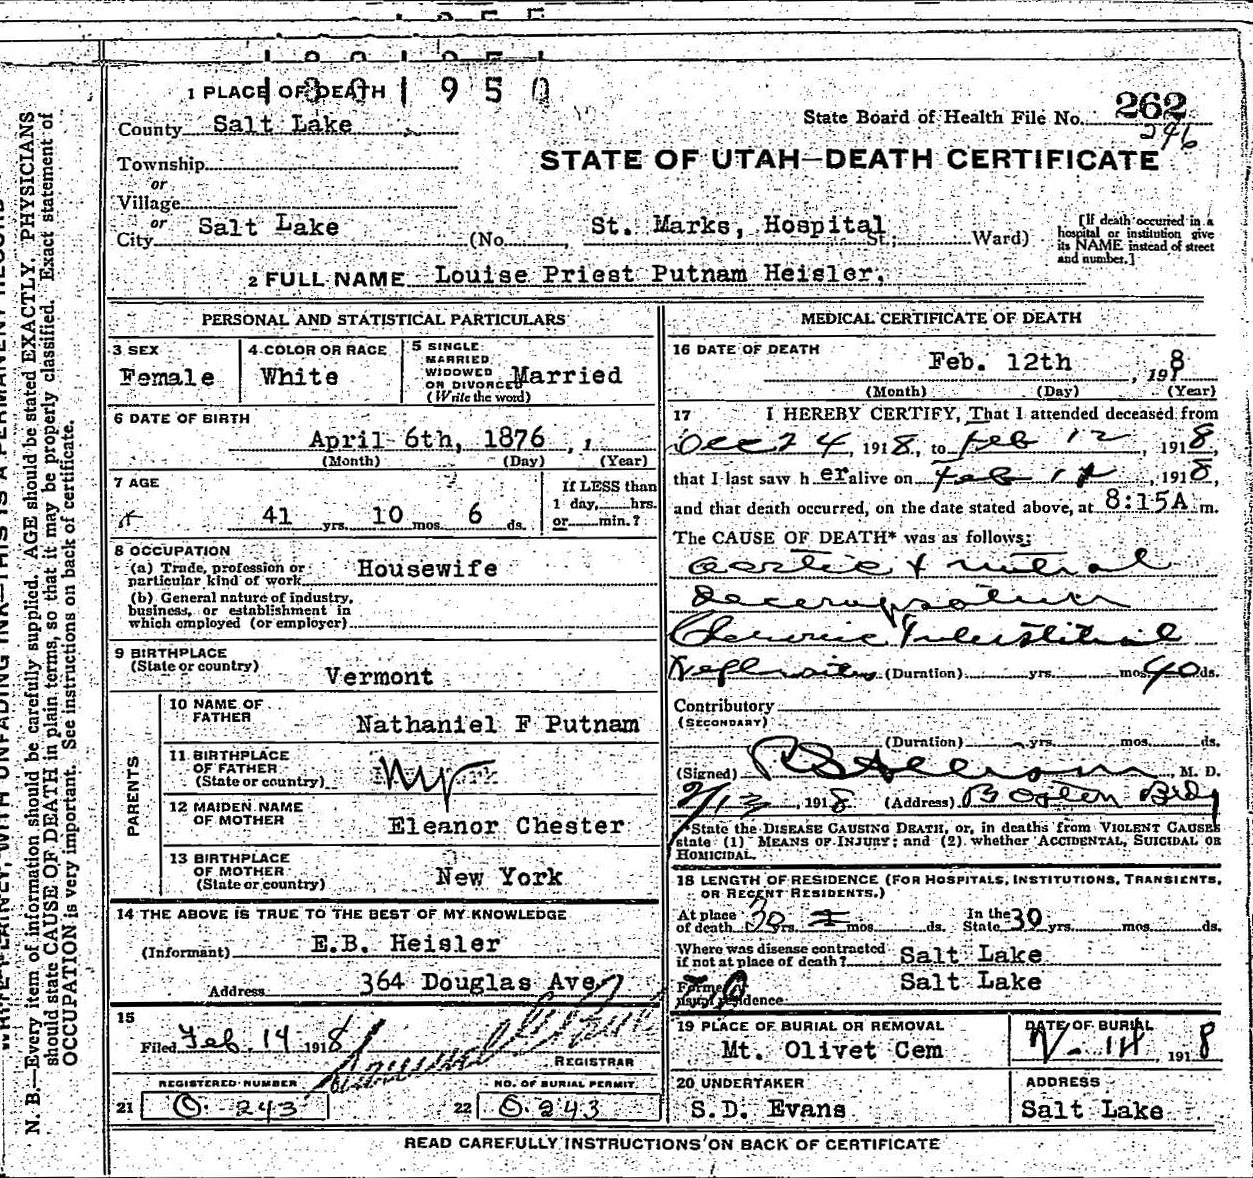 1 PLACE OF DEATH
1950
County Salt Lake
State Board of Health File No. 262
296
STATE OF UTAH—DEATH CERTIFICATE
Township
or
Village
or
City Salt Lake (No. , St. Marks, Hospital St.; Ward)
[If death occurred in a hospital or institution give its NAME instead of street and number.]
2 FULL NAME Louise Priest Putnam Heisler.
PERSONAL AND STATISTICAL PARTICULARS
3 SEX
Female
4 COLOR OR RACE
White
5 SINGLE
MARRIED
WIDOWED
OR DIVORCED Married
(Write the word)
6 DATE OF BIRTH
April 6th, 1876 , 1
(Month) (Day) (Year)
7 AGE
41 yrs. 10 mos. 6 ds.
If LESS than
1 day, hrs.
or min.?
8 OCCUPATION
(a) Trade, profession or
particular kind of work Housewife
(b) General nature of industry,
business, or establishment in
which employed (or employer)
9 BIRTHPLACE
(State or country)
Vermont
PARENTS
10 NAME OF
FATHER
Nathaniel F Putnam
11 BIRTHPLACE
OF FATHER
(State or country)
12 MAIDEN NAME
OF MOTHER
Eleanor Chester
13 BIRTHPLACE
OF MOTHER
(State or country)
New York
14 THE ABOVE IS TRUE TO THE BEST OF MY KNOWLEDGE
(Informant) E.B. Heisler
Address 364 Douglas Ave
15
Filed Feb. 14 1918
REGISTRAR
REGISTERED NUMBER
21 O. 243
NO. OF BURIAL PERMIT
22 O. 243
MEDICAL CERTIFICATE OF DEATH
16 DATE OF DEATH
Feb. 12th , 1918
(Month) (Day) (Year)
17 I HEREBY CERTIFY, That I attended deceased from
Dec 24, 1918, to Feb 12, 1918,
that I last saw h er alive on Feb 12, 1918,
and that death occurred, on the date stated above, at 8:15A m.
The CAUSE OF DEATH* was as follows:
Aortic & mitral
Chronic Interstitial
Nephritis (Duration) yrs. mos. 40 ds.
Contributory
(SECONDARY)
(Duration) yrs. mos. ds.
(Signed) M. D.
2/13, 1918 (Address) Boston Bldg
*State the DISEASE CAUSING DEATH, or, in deaths from VIOLENT CAUSES
state (1) MEANS OF INJURY; and (2) whether ACCIDENTAL, SUICIDAL OR
HOMICIDAL.
18 LENGTH OF RESIDENCE (FOR HOSPITALS, INSTITUTIONS, TRANSIENTS,
OR RECENT RESIDENTS.)
At place
of death 30 yrs. mos. ds.
In the
State 30 yrs. mos. ds.
Where was disease contracted
if not at place of death? Salt Lake
Former or
usual residence Salt Lake
19 PLACE OF BURIAL OR REMOVAL
Mt. Olivet Cem
DATE OF BURIAL
14, 1918
20 UNDERTAKER
S.D. Evans
ADDRESS
Salt Lake
READ CAREFULLY INSTRUCTIONS ON BACK OF CERTIFICATE
WRITE PLAINLY, WITH UNFADING INK—THIS IS A PERMANENT RECORD
N. B.—Every item of information should be carefully supplied. AGE should be stated EXACTLY. PHYSICIANS
should state CAUSE OF DEATH in plain terms, so that it may be properly classified. Exact statement of
OCCUPATION is very important. See instructions on back of certificate.